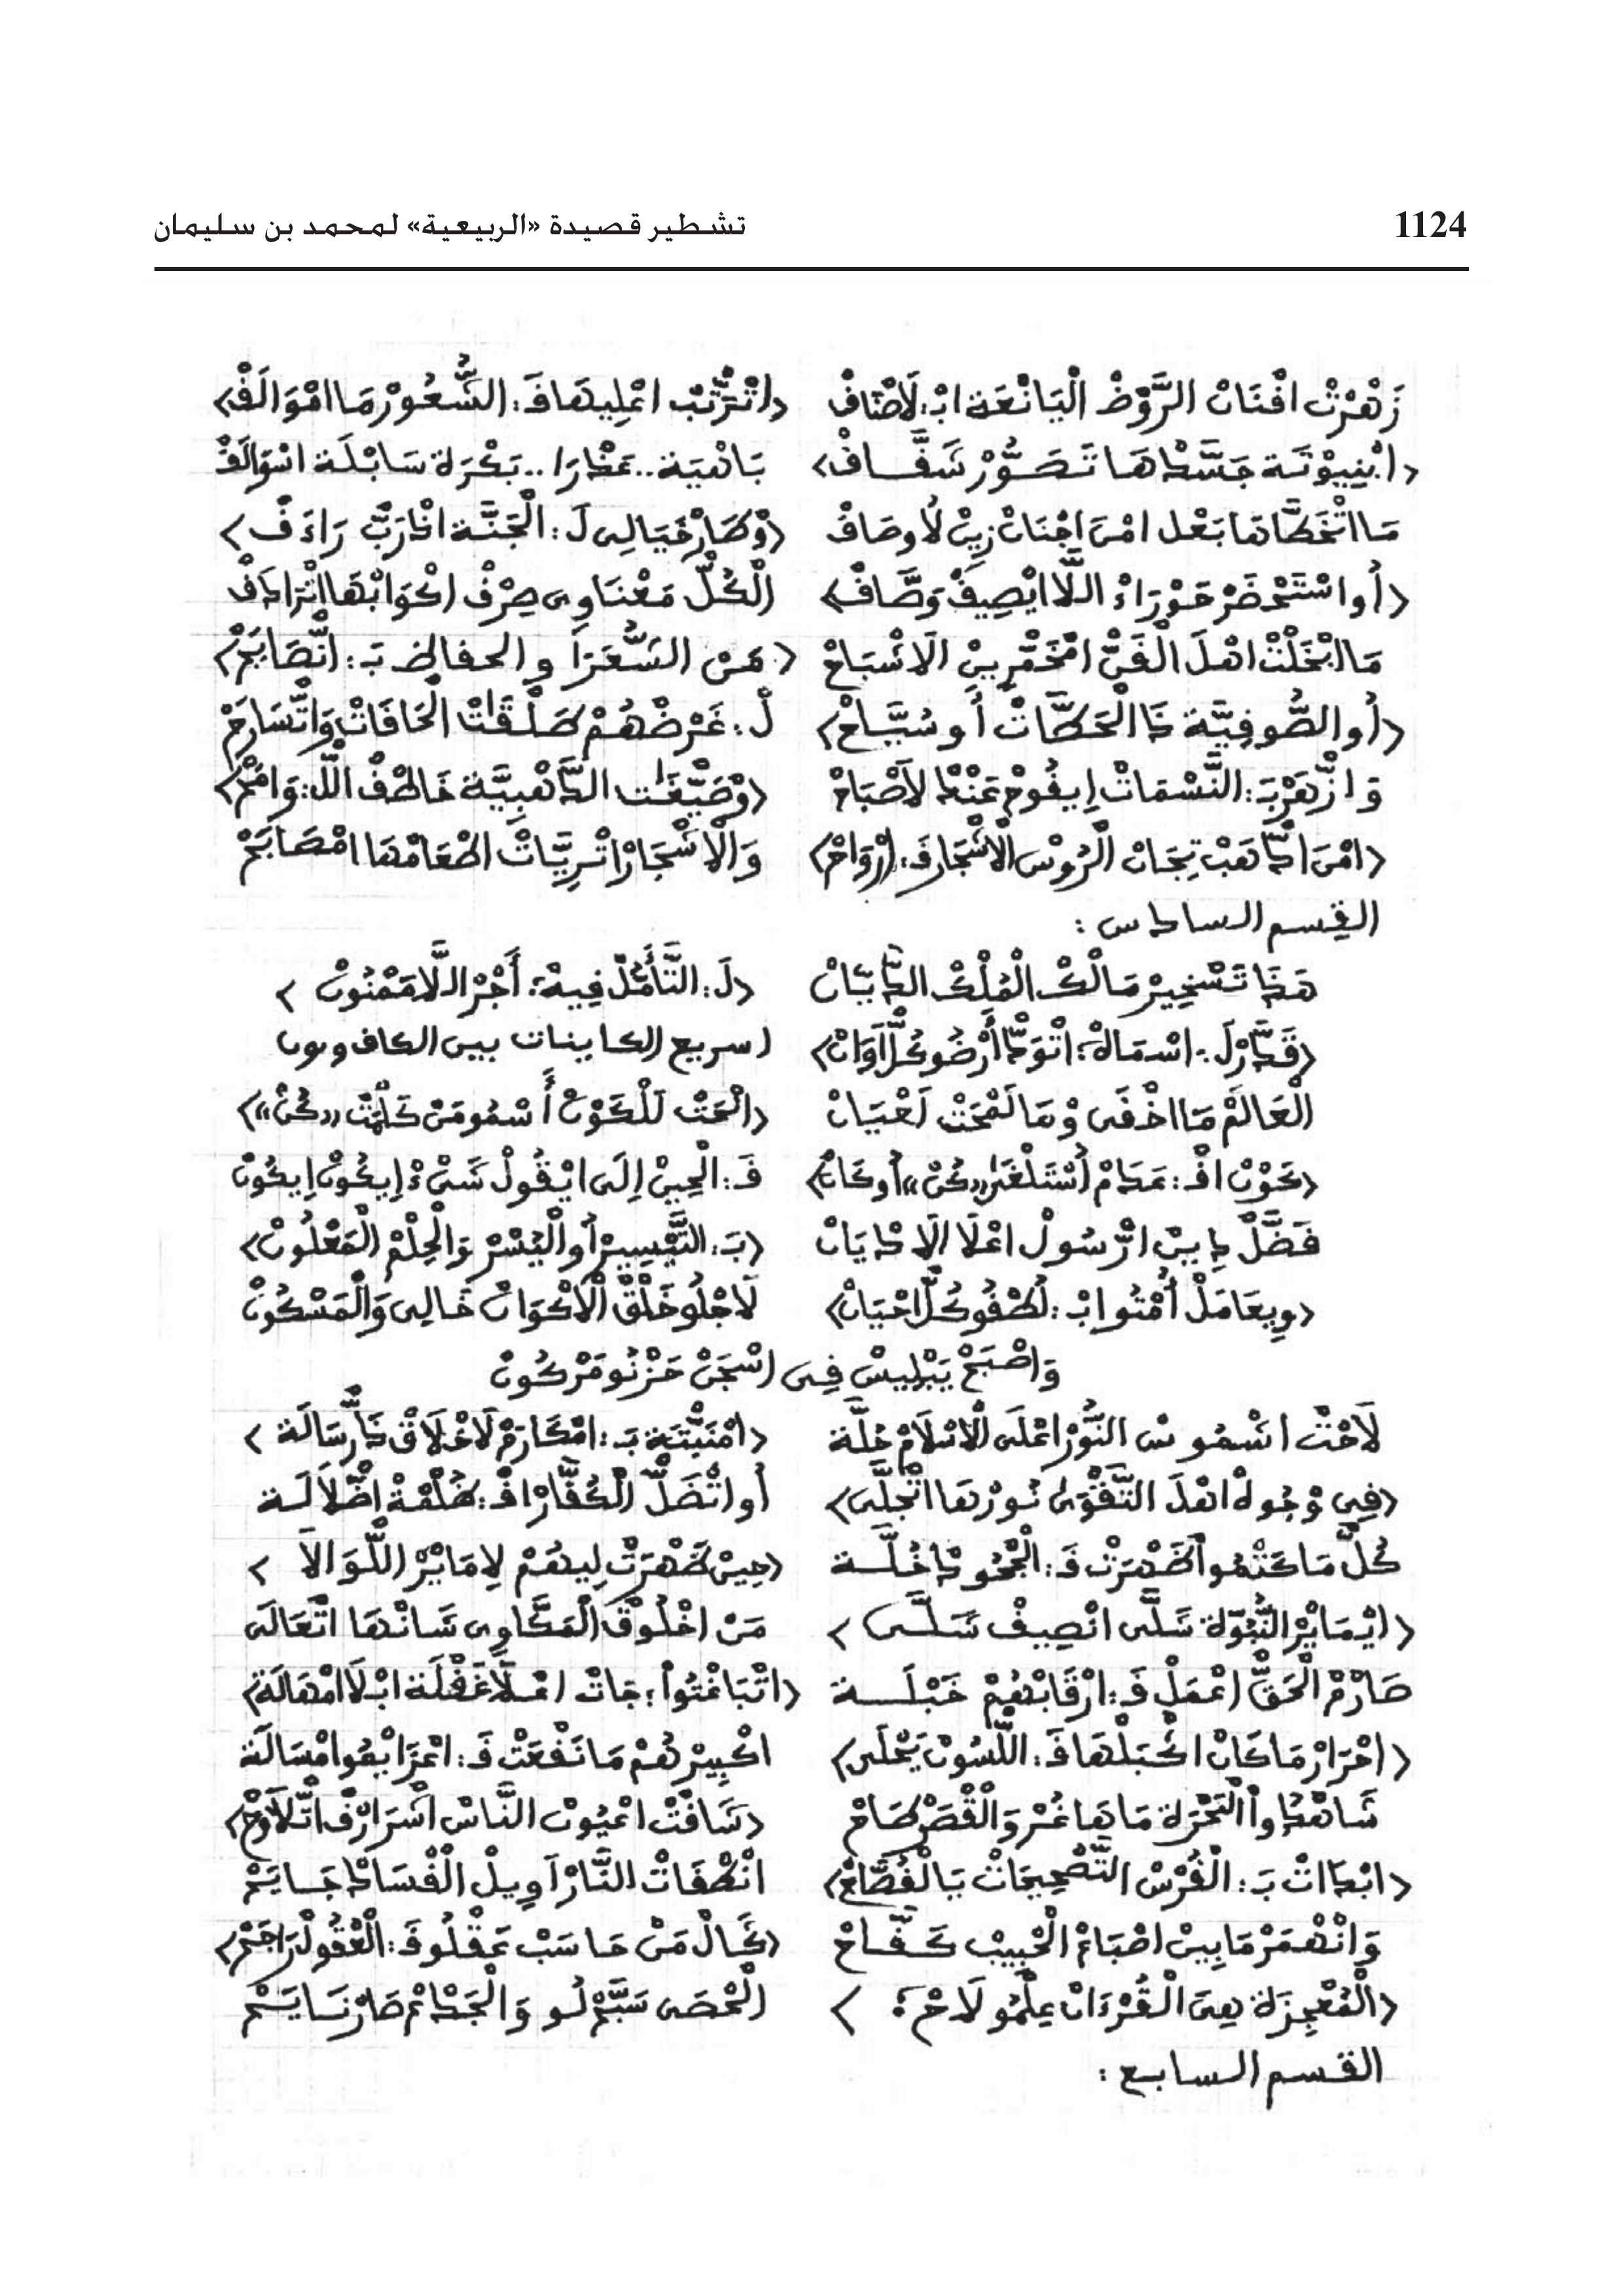 1124 تشطير قصيدة «الربيعية» لمحمد بن سليمان
زَهْرْتْ افْنَانْ الرَّوْضْ الْيَانْعَة ابْ:لَاصْنَافْ ‹اتْرَتّبْ اعْلِيهَا فَ:الشُّعُورْ مَا امْوَالَفْ›
‹ابْنِيوْتَة جَسَّدْهَا تَصَوُّرْ شَفَّافْ› بَاهْيَة..عَدْرَا..بَكْرَة سَابْلَة اسْوَالَفْ
مَا اتْخَطَّاهَا بَعْد امْنَ اجْنَانْ زِينْ لَاوصَافْ ‹وْطَارْ خَيَالِي لَ:الْجَنَّة ادَارَبّ رَاءَفْ›
‹أُو اسْتَحْضَرْ حَوْرَاءْ اللَّا ايْصِيفْ وَصَّافْ› الْكُلّ مَعْنَاوِي صِرْفْ اكْوَابْهَا اتْرَادَفْ
مَا ابْخَلْتْ اهْلَ الْفَنّ امْخَمّرِينْ الَاشْبَاحْ ‹مَنْ الشُّعَرَا والحفاظ بَ:انْصَايَحْ›
‹أُو الصُّوفِيَّة دَا الْحَطَّاتْ أُو سُيَّاحْ› لْ:غَرْضْهُمْ طَلْقَاتْ الْحَافَاتْ وَاتْسَارَحْ
وَازْهَرْ بَ:النَّسْمَاتْ إِيفُوحْ عَنْدْ لَاصْبَاحْ ‹وْصَبّغَاتْ الدَّهْبِيَّة خَاطْفْ اللّ:وَامَحْ›
‹امْنَ ادَّهَبْ تِيجَانْ الْرُوسْ الْاشْجَارْ فَ:ارْوَاحْ› وَالْاشْجَارْ اتْرِيَّاتْ اطْعَامْهَا امْصَابَحْ
القسم السادس :
هَدَا تَسْخِيرْ مَالْكْ الْمُلْكْ الدَّيَّانْ ‹لَ:التَّأَمُّلْ فِيهْ: أَجْرْ اللَّا مَمْنُونْ ›
‹قَدَّرْ لَ:اسْمَاهْ:اتْوَدّ أَرْضُو كُلّ آوَانْ› اسريع الكاينات بين الكاف ونون
الْعَالَمْ مَا اخْفَى وْمَا لَمْحَتْ لَعْيَانْ ‹الْمَحْتْ لَلْكَوْنْ أَسْمُو مَنْ كَلِمْتْ «كُنْ»›
‹كَوْنْ افْ:عَدَمْ أَسْتَلْغَى «كُنْ» أُو كَانْ› فَ:الْحِينْ إِلَى ايْقُولْ شَيْءْ إِيكُونْ إِيكُونْ
فَضَّلْ دِينْ الرَّسُولْ اعْلَا الَادْيَانْ ‹بَ:التَّيْسِيرْ أُو الْيُسْرْ وَالْحِلْمْ الْمَعْلُونْ›
‹وِيعَامَلْ أُمْتُو ابْ:لُطْفُو كُلّ احْيَانْ› لَاجْلُو خَلْقْ الْاكْوَانْ خَالِي وَالْمَسْكُونْ
وَاصْبَحْ يَبْلِيسْ فِي اسْجَنْ حَزْنُو مَرْكُونْ
لَاحْتْ اشْمُوسْ النُّورْ اعْلَى الْاسْلَامْ حُلَّة ‹امْنَبّتَة بَ:امْكَارَمْ لَاخْلَاقْ دَا رّسَالَة ›
‹فِي وْجُوهْ اهْلَ التَّقْوَى نُورْهَا اتْجَلَّى› أُو اتْضَلّ الْكُفَّارْ افْ:ظُلْمْة اضْلَالَة
كُلّ مَا كَتْمُوا أَظَهْرَتْ فَ:الْجَّوْ دَاخُلَّة ‹حِينْ ظَهْرَتْ لِيهُمْ لِامَايْرْ اللَّوَالَا ›
‹ايْمَايْرْ النُّبُوَّة شَلَّى انْصِيفْ شَلَّى › مَنْ اخْلُوقْ الْمَكَّاوِي شَانْهَا اتْعَالَى
صَارْمْ الْحَقّ اعْمَلْ فَ:ارْقَابْهُمْ خَبْلَة ‹اتْبَاغْتُوا:جَاتْ اعْلَا غَفْلَة ابْلَا امْهَالَة›
‹احْرَارْ مَا كَانْ اكْبَلْهَا فَ:اللُّسُونْ يَحْلَى› اكْبِيرْهُمْ مَا نَفْعَتْ فَ:اعْزَايْمُو امْسَالَة
شَاهْدُوا أَلْبَحْرَة مَاهَا غُرْ وَالْقْصَرْ طَاحْ ‹شَافْتْ اعْيُونْ النَّاسْ اشْرَارْفْ اتّلَاوَحْ›
‹ابْدَاتْ بَ:الْفُرْسْ التَّصْحِيحَاتْ بَالْفُصَّاحْ› انْطْفَاتْ النَّارْ أُو وِيلْ الْفْسَادْ جَايَحْ
وَانْهْمَرْ مَا بِينْ اصْبَاعْ الْحَبِيبْ كَفَّاحْ ‹دَحَالْ مَنْ حَاسَبْ عَقْلُو فَ:الْعْقُولْ رَاجَحْ›
‹الْمُعْجِزَة هِيَ الْقُرْءَانْ عِلْمُو لَاحْ: › الْحْصَى سَبَّحْ لُو وَالْجَدَعْ صَارْ نَايَحْ
القسم السابع :